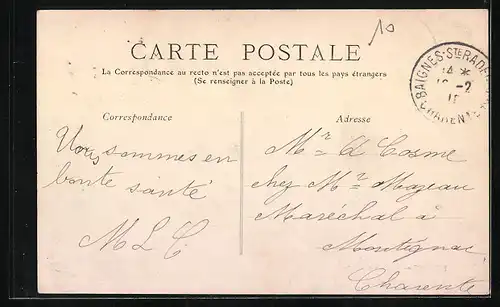 10
CARTE POSTALE
La Correspondance au recto n'est pas acceptée par tous les pays étrangers
(Se renseigner à la Poste)
BAIGNES-STE RADE
14 *
2
CHARENTE
Correspondance
Vous sommes en
bonte santé
M L C
Adresse
Mr A Cosme
chez Mr Mazeau
Maréchal à
Montignac
Charente